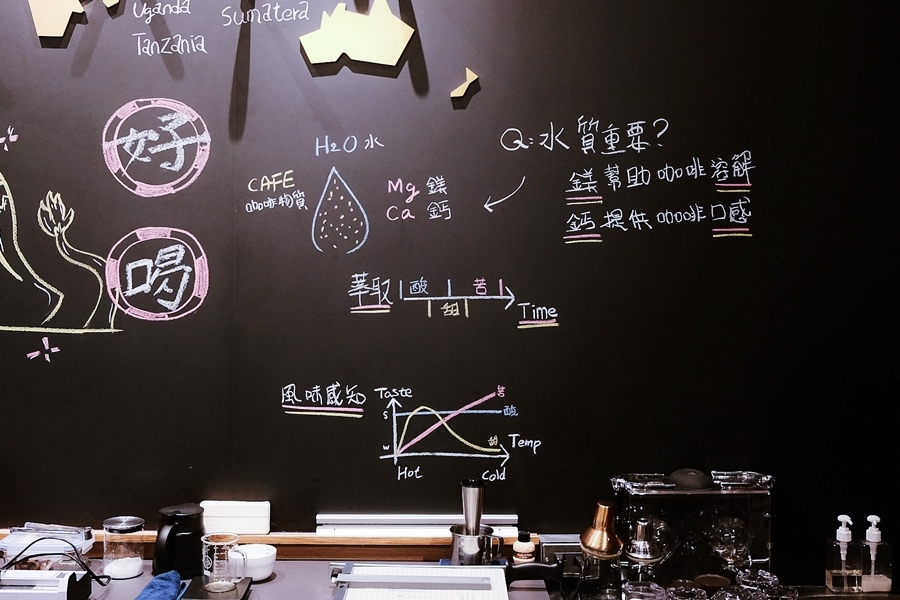 Uganda
Sumatera
Tanzania
好
喝
H2O 水
CAFE
咖啡物質
Mg 鎂
Ca 鈣
Q:水質重要?
鎂幫助咖啡溶解
鈣提供咖啡口感
萃取 酸 苦
甜
Time
風味感知
Taste
苦
S
酸
甜
Temp
W
Hot
Cold